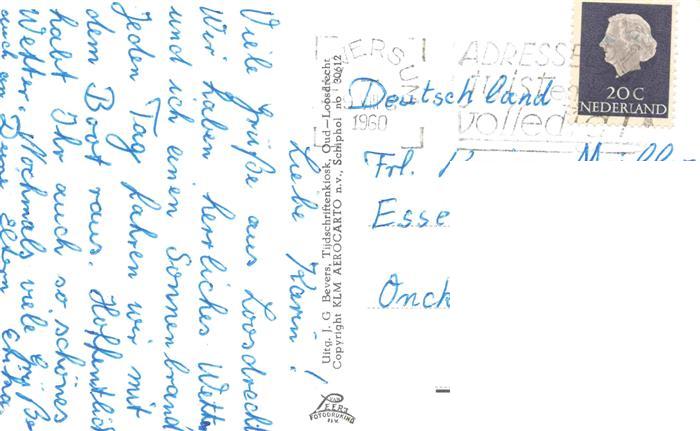 Liebe Karin!
Viele Grüße aus Loosdrecht
Wir haben herrliches Wetter
und ich einen Sonnenbrand
Jeden Tag fahren wir mit
dem Boot raus. Hoffentlich
habt Ihr auch so schönes
Wetter. Nochmals viele Grüße
auch an Deine Eltern
Uitg. J. G Bevers, Tijdschriftenkiosk, Oud-Loosdrecht
Copyright KLM AEROCARTO n.v., Schiphol no 30612
VAN LEER'S
FOTODRUKIND
N.V.
VERSUM
1960
ADRESSE
JUISTE
volled
20 C
NEDERLAND
Deutschland
Frl. Müller
Esse
Onck